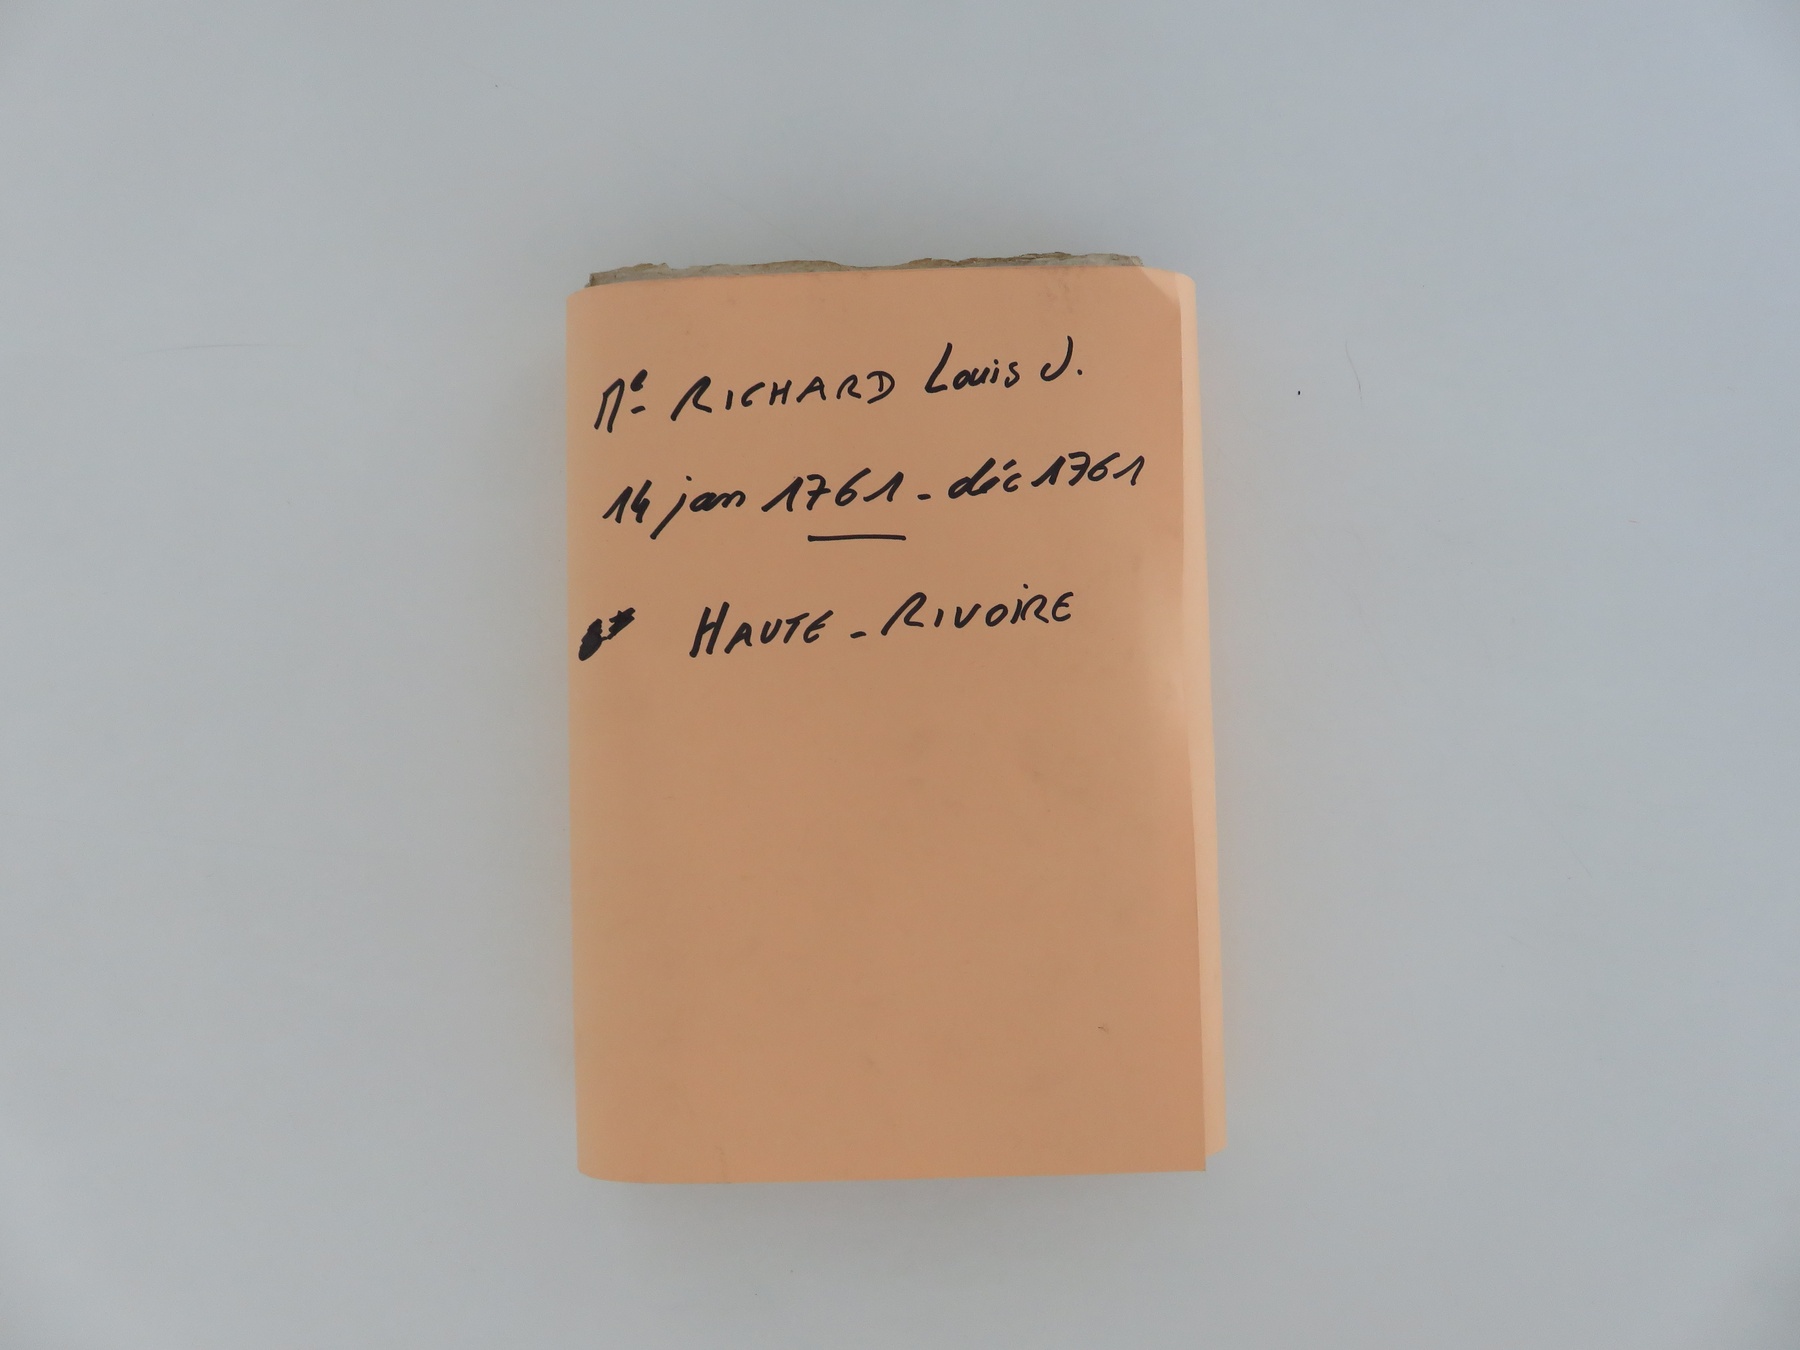 Me RICHARD Louis J.
14 jan 1761 - déc 1761
HAUTE - RIVOIRE